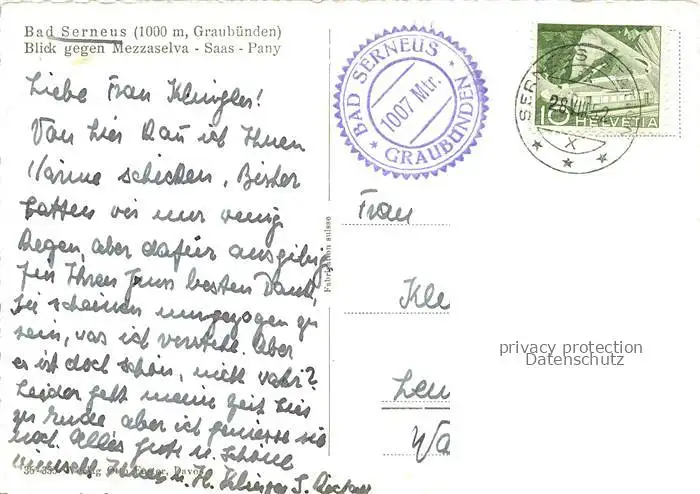 Bad Serneus (1000 m, Graubünden)
Blick gegen Mezzaselva - Saas - Pany
Liebe Frau Klingler!
Von hier kann ich Ihnen
Wärme schicken, Bisher
hatten wir nur wenig
Regen, aber dafür ausgiebig
für Ihren Gruss besten Dank,
Sie scheinen umgezogen zu
sein, was ich verstehe. Aber
es ist doch schön, nicht wahr?
Leider geht meine Zeit hier
zu Ende aber ich geniesse sie
noch. Alles Gute u. Schöne
wünscht Ihnen u. H.
Verlag Davos
Fabrication suisse
BAD SERNEUS
1007 Mtr.
GRAUBÜNDEN
SERNEUS
28.VIII
X
10 HELVETIA
Frau
Kle
privacy protection
Datenschutz